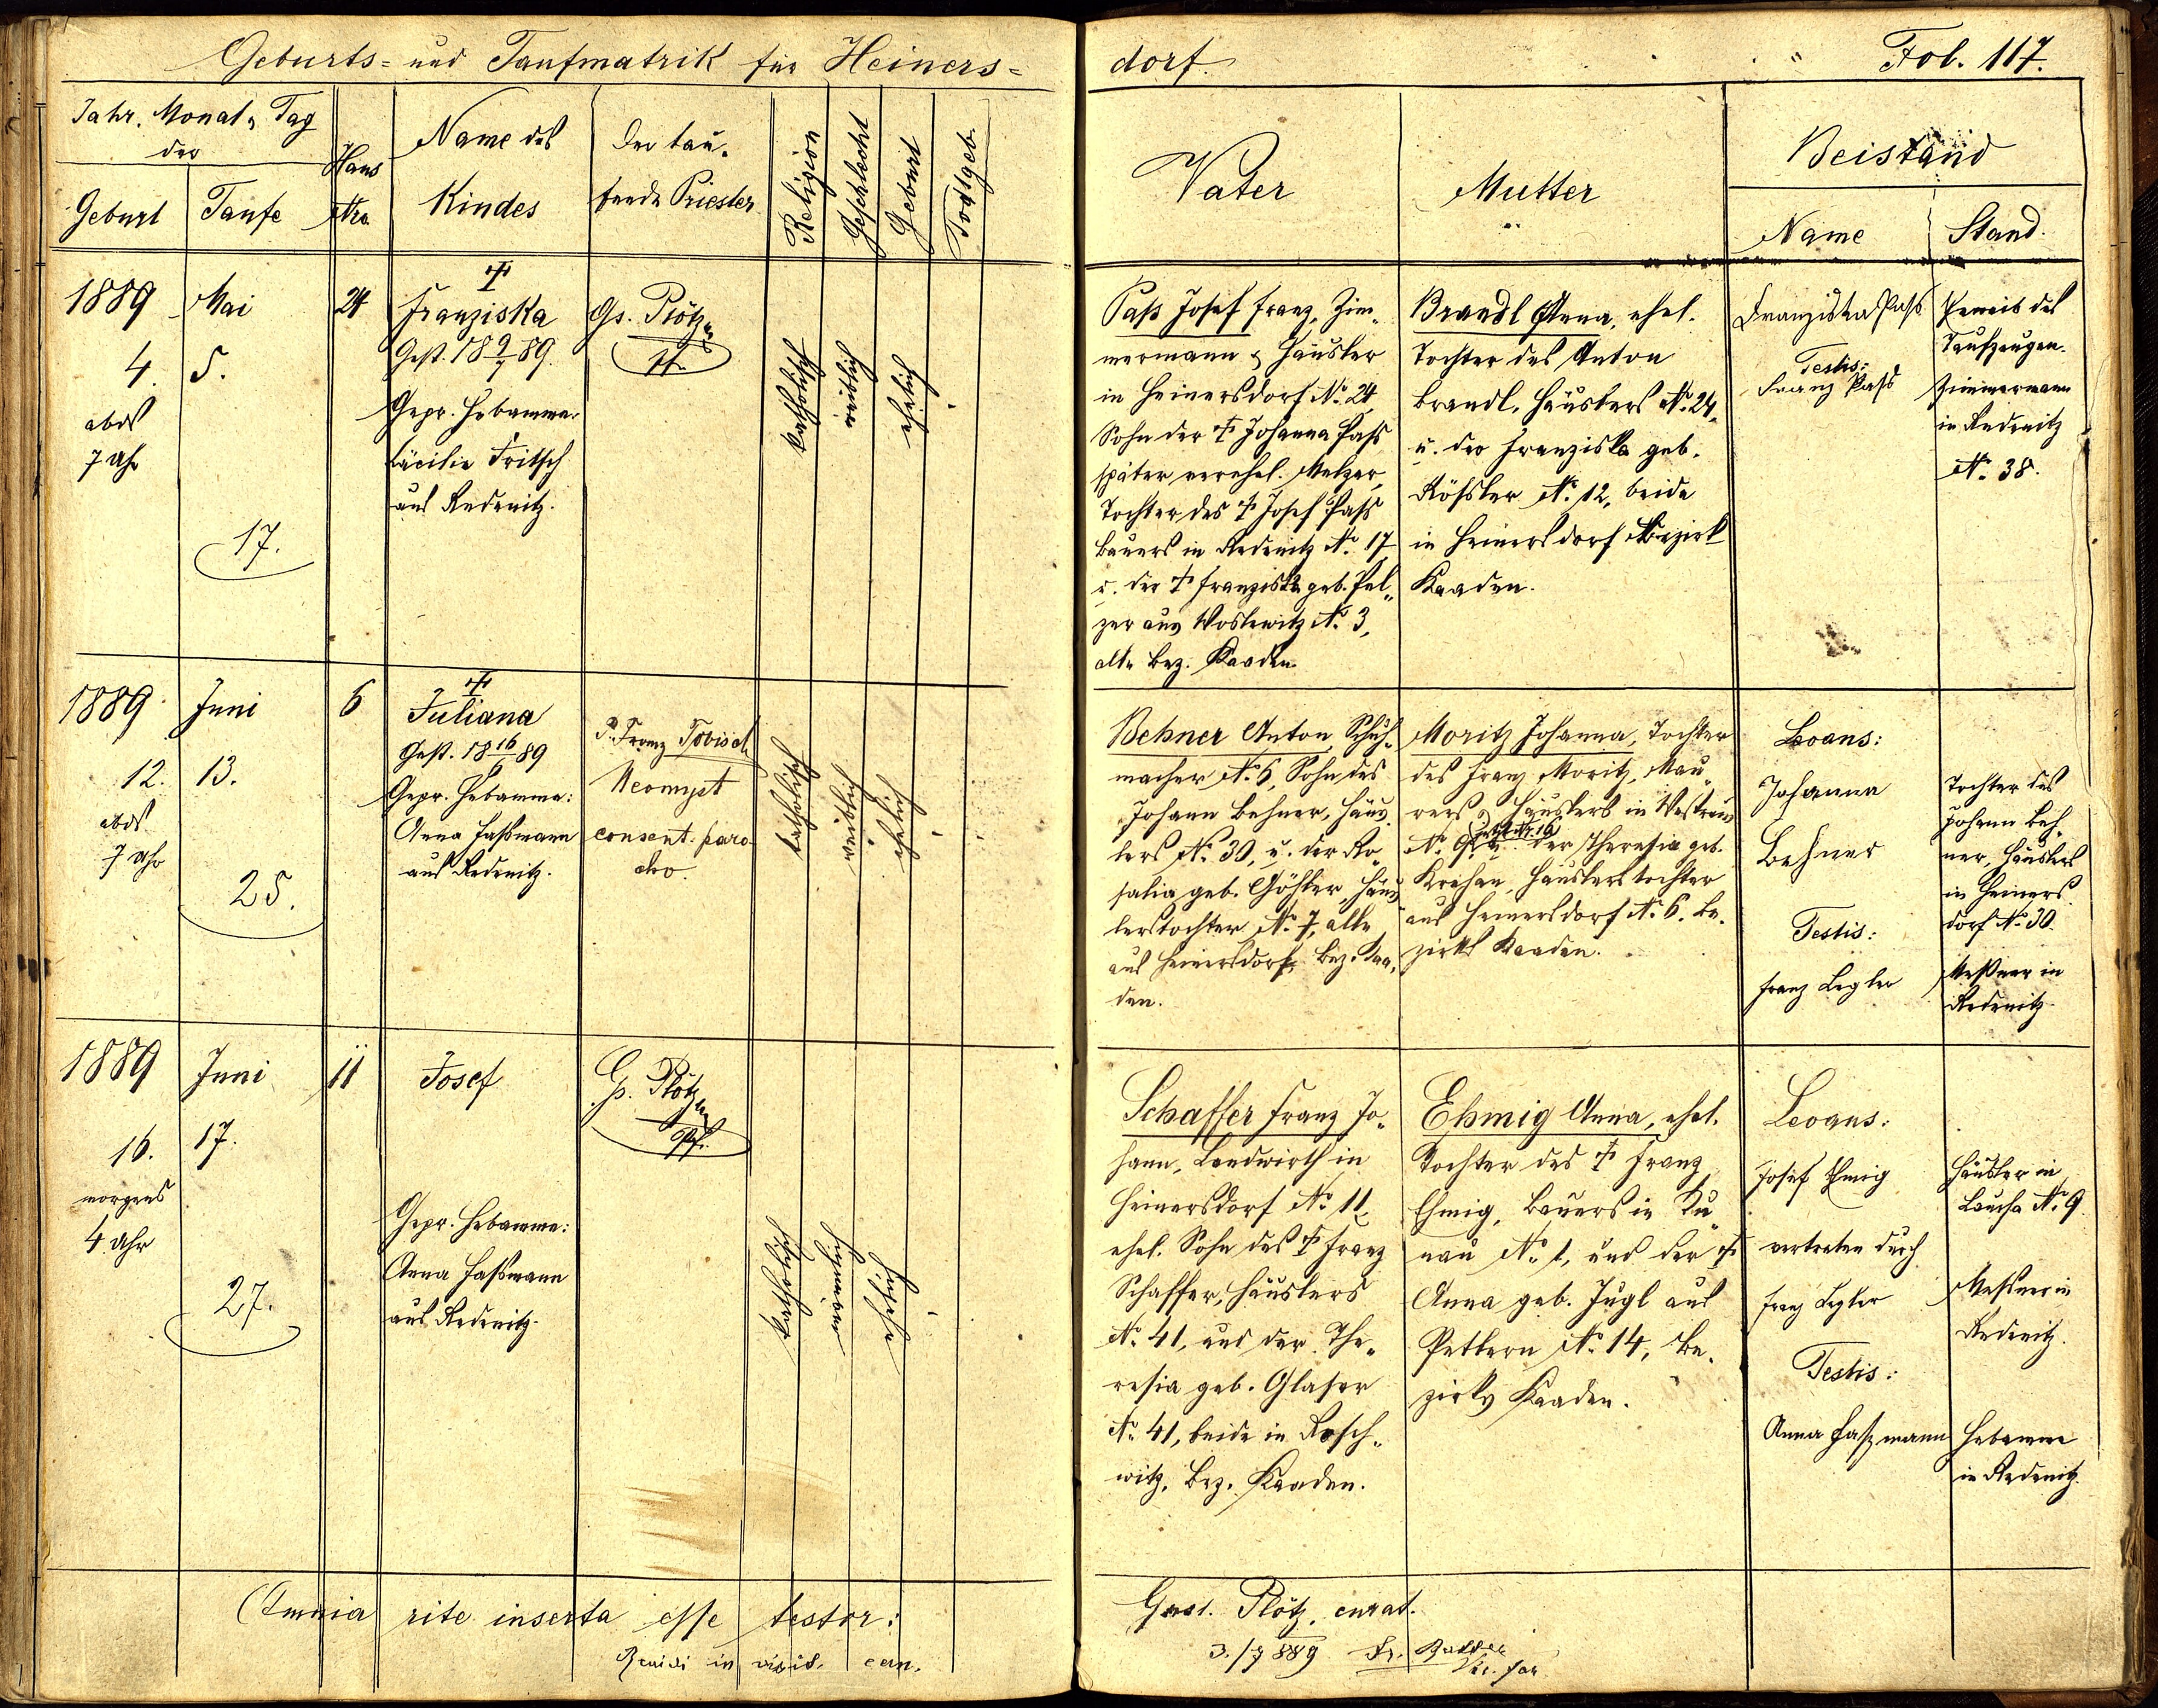 Geburts- und Taufmatrik für Heiners-
dorf.
Fol. 117.
Jahr, Monat, Tag
der
Geburt
Taufe
Haus
Nro
Name des
Kindes
Der tau-
fende Priester
Religion
Geschlecht
Geburt
Todtgeb.
Vater
Mutter
Beistand
Name
Stand.
1889
4.
abds
7 Uhr
Mai
5.
17.
24
†
Franziska
Gest. 18 9/7 89.
Gepr. Hebamme:
Cäcilie Fritsch
aus Redenitz.
Gs. Plötz
katholisch
weiblich
ehelich
Paß Josef Franz, Zim-
mermann & Häusler
in Heinersdorf No. 24,
Sohn der † Johanna Pass
später verehel. Melzer,
Tochter des † Josef Pass
Bauers in Redenitz No. 17
u. der † Franziska geb. Pel-
zer aus Woslewitz No. 3,
alle Bez. Kaaden.
Brandl Anna, ehel.
Tochter des Anton
Brandl, Häuslers No. 24,
u. der Franziska geb.
Rössler No. 12, beide
in Heinersdorf Bezirk
Kaaden.
Franziska Pass
Testis:
Franz Pass
Eheweib des
Taufzeugen.
Zimmermann
in Redenitz
No. 38.
1889
12.
abds
7 Uhr
Juni
13.
25.
6
†
Juliana
Gest. 18 16/6 89
Gepr. Hebamme:
Anna Fassmann
aus Redenitz.
P. Franz Tobisch
Neomyst
consent. paro-
cho
katholisch
weiblich
ehelich
Behner Anton, Schuh-
macher No. 6, Sohn des
Johann Behner, Häus-
lers No. 30, u. der Ro-
salia geb. Gössler, Häus-
lerstochter No. 7, alle
aus Heinersdorf, Bez. Kaa-
den.
Moritz Johanna, Tochter
des Franz Moritz, Mau-
rers & Häuslers in
No. u. der Theresia geb.
Krehan, Häuslerstochter
aus Heinersdorf No. 6. Be-
zirks Kaaden.
Levans:
Johanna
Behner
Testis:
Franz Legler
Tochter des
Johann Beh-
ner, Häuslers
in Heiners-
dorf No. 30.
Messner in
Redenitz.
1889
16.
morgens
4 Uhr
Juni
17.
27.
11
Josef
Gepr. Hebamme:
Anna Fassmann
aus Redenitz.
Gs. Plötz
Pf.
katholisch
männlich
ehelich
Schaffer Franz Jo-
hann, Landwirth in
Heinersdorf No. 11,
ehel. Sohn des † Franz
Schaffer, Häuslers
No. 41, und der The-
resia geb. Glaser
No. 41, beide in Rosch-
witz, Bez. Kaaden.
Ehmig Anna, ehel.
Tochter des † Franz
Ehmig, Bauers in Ku-
nau No. 1, und der †
Anna geb. Jugl aus
Pettern No. 14, Be-
zirks Kaaden.
Levans:
Josef Ehmig
vertreten durch
Franz Legler
Testis:
Anna Faßmann
Häusler in
Laucha No. 9
Messner in
Redenitz.
Hebamme
in Redenitz.
Omnia rite inserta esse testor:
Gust. Plötz, curat.
Revidi in visit. can.
3./7 889